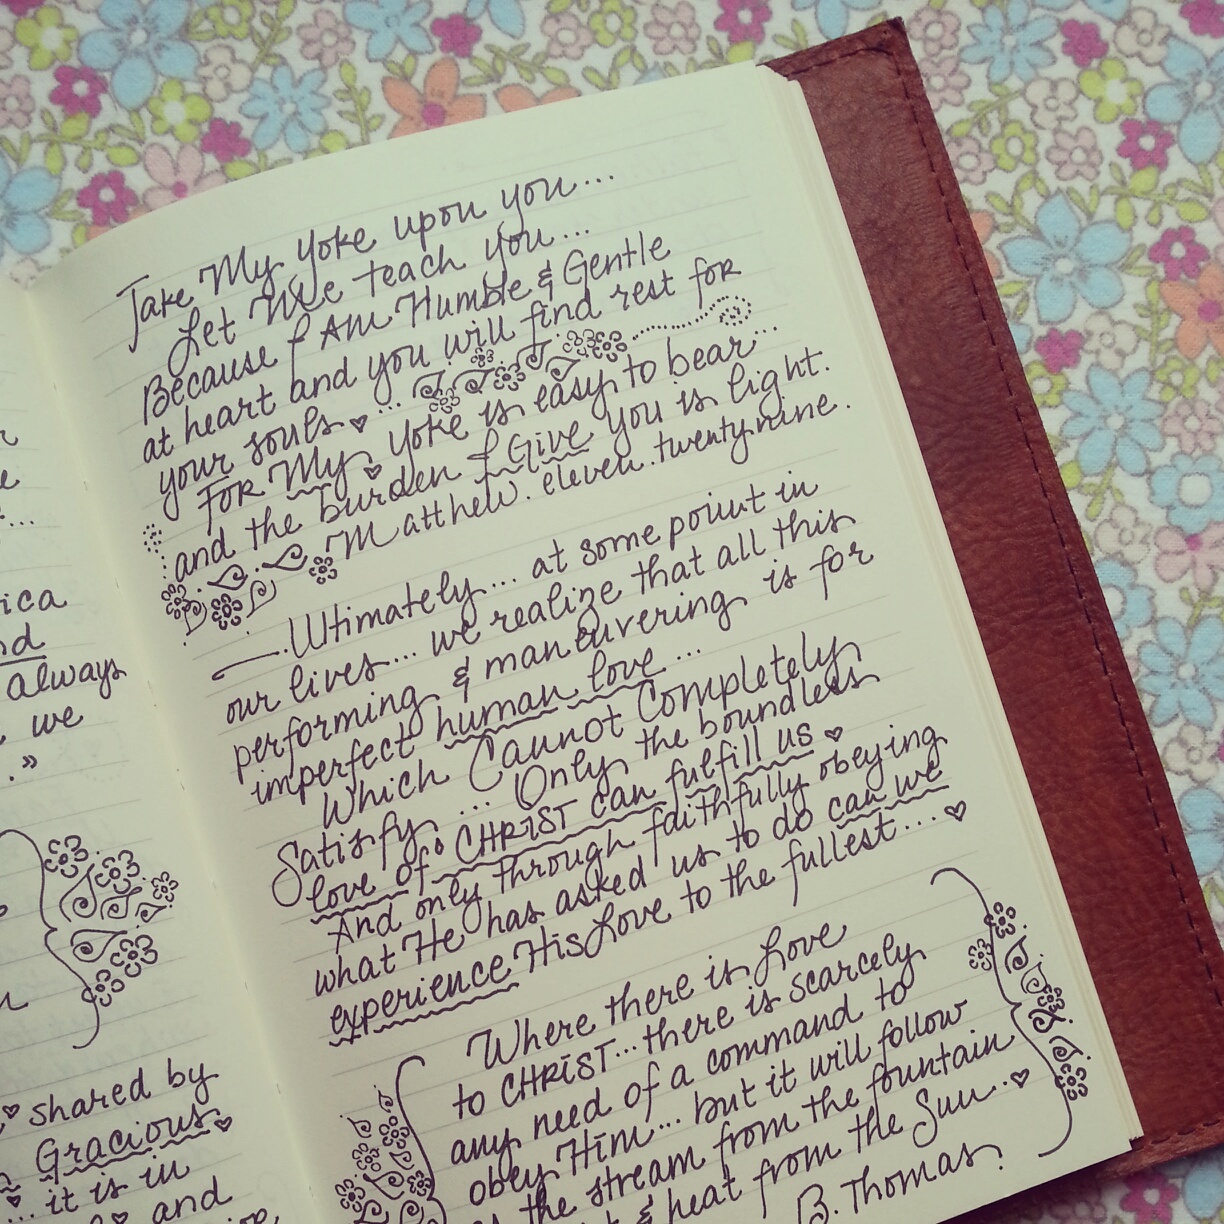 always
we
shared by
Gracious
it is in
and
Take My Yoke upon you...
Let Me teach you...
Because I Am Humble & Gentle
at heart and you will find rest for
your souls...
For My Yoke is easy to bear...
and the burden I Give You is light.
Matthew. eleven. twenty.nine.
Ultimately.... at some point in
our lives... we realize that all this
performing & maneuvering is for
imperfect human love...
Which Cannot Completely
Satisfy... Only the boundless
love of CHRIST can fulfill us
And only through faithfully obeying
what He has asked us to do can we
experience His Love to the fullest...
Where there is Love
to CHRIST... there is scarcely
any need of a command to
obey Him... but it will follow
the stream from the fountain
& heat from the Sun..
B. Thomas.